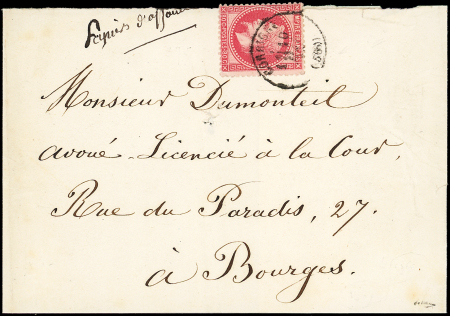 Papiers d'affaires
Monsieur Dumonteil
avoué-Licencié à la Cour,
Rue du Paradis, 27.
à Bourges.